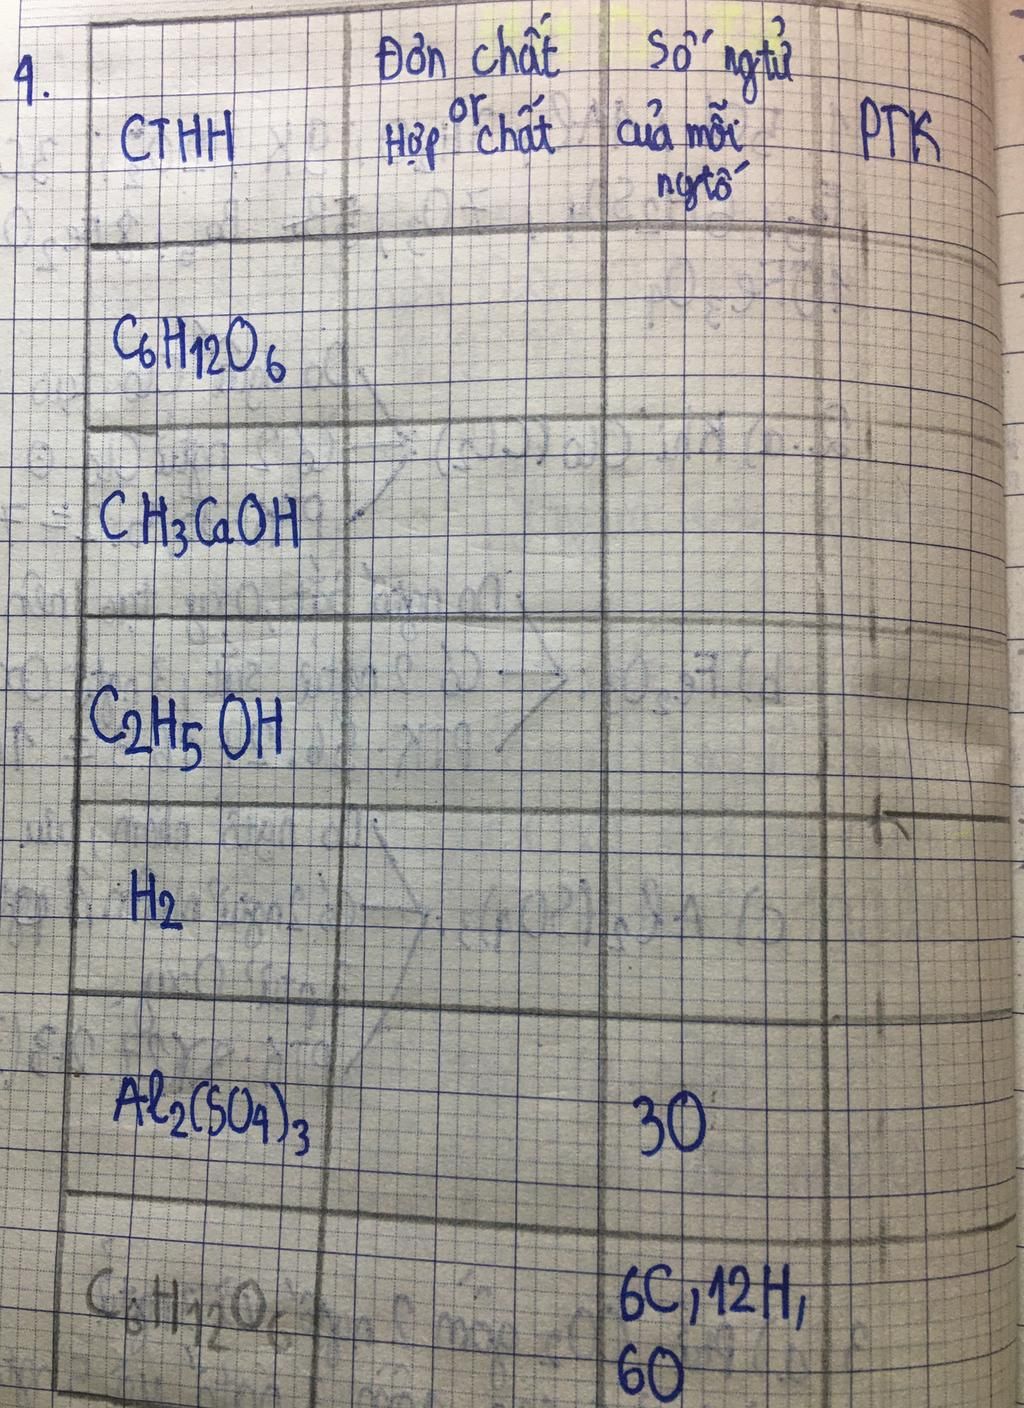 4.
CTHH
Đơn chất
or
Hợp chất
Số ngtử
của mỗi
ngtố
PTK
C6H12O6
CH3CaOH
C2H5OH
H2
Al2(SO4)3
3O
C6H12O6
6C, 12H,
6O